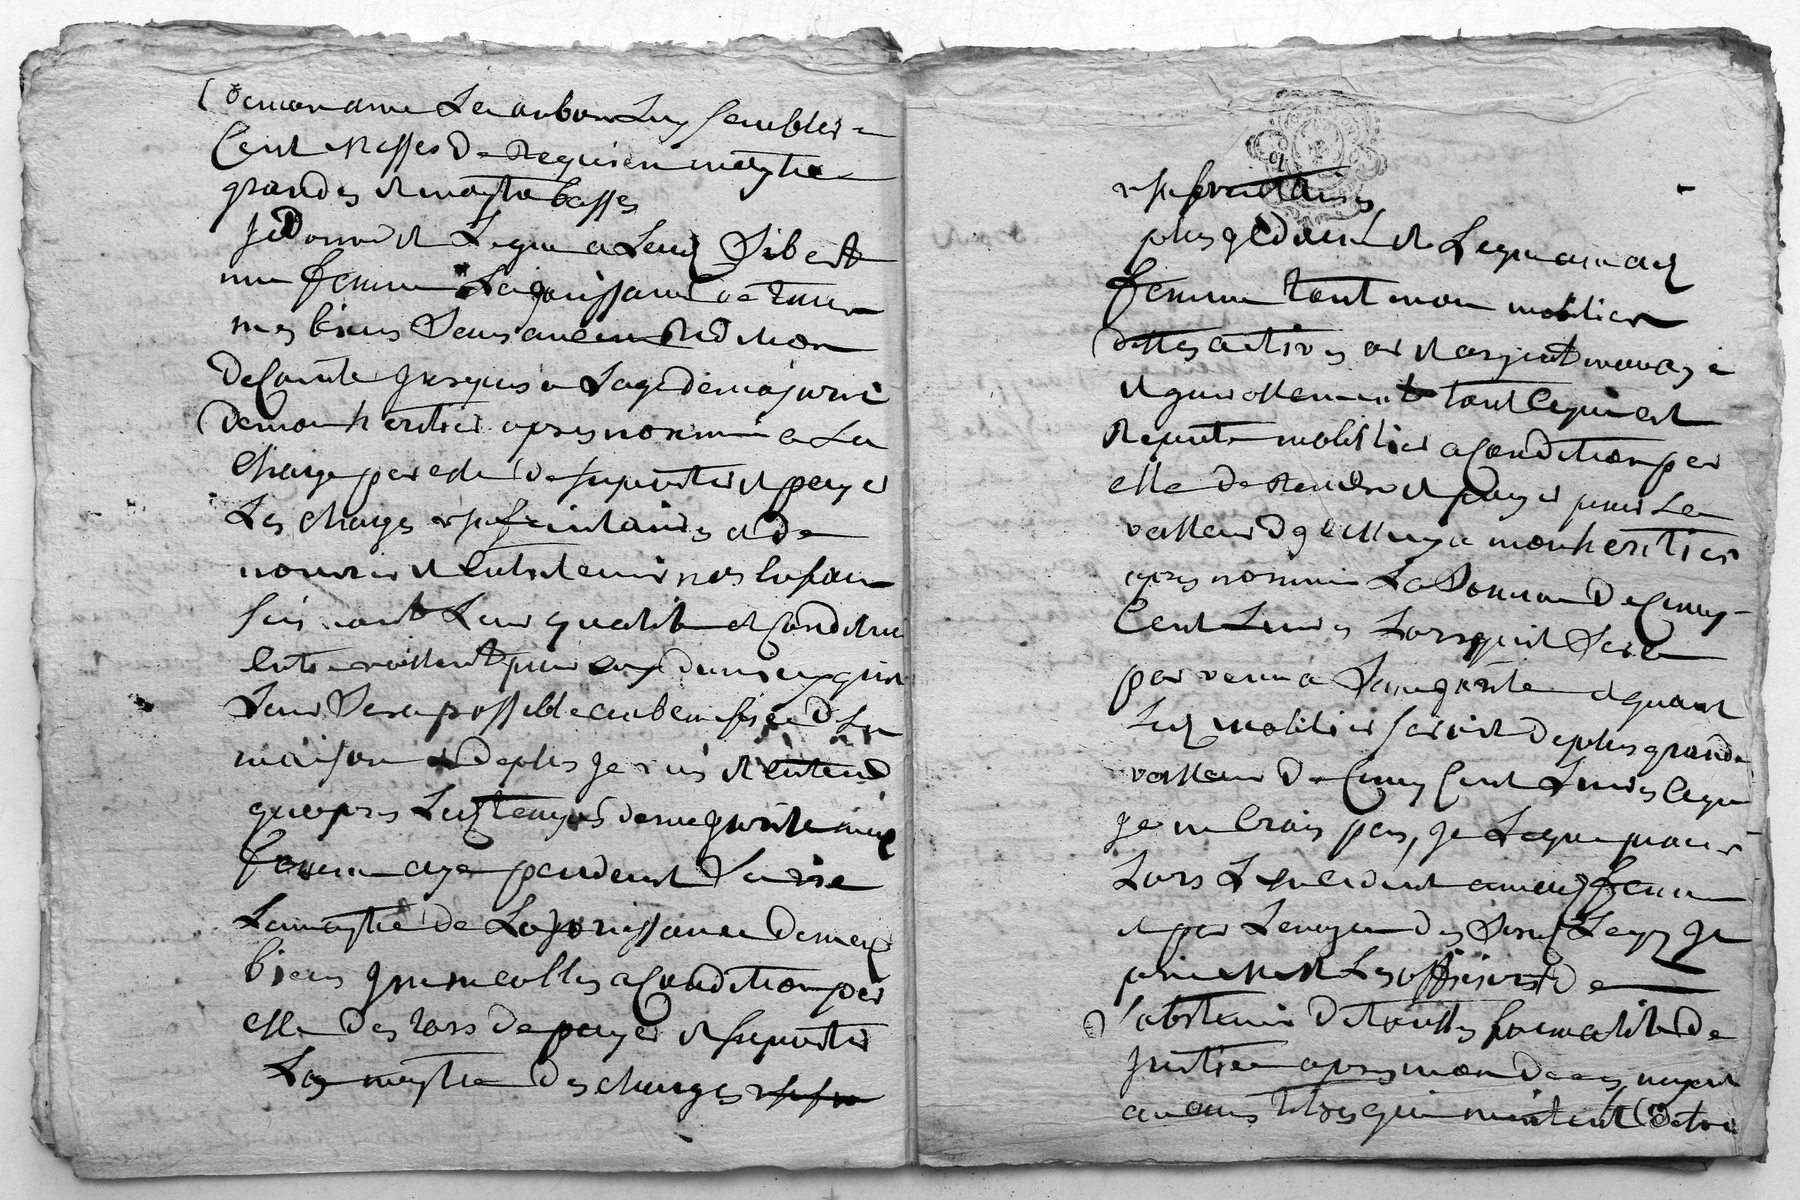 de mon ame Le anbout Luy sembler
Cent Messes de Requien moytie
grandes et moytie basses
Je donne et Legue a Sibert
ma femme La jouissance de tous
mes biens Sans aucune Redition
de Compte jusques a L'age de majorité
de mon heritier apres nommé a La
charge par elle de suporter et payer
Les charges et de
nourrir et Entretenir nos Enfans
suivant Leur qualité et Condition
Entravaillant pour eux du mieux quil
Leur Sera possible au benefice de La
maison de plus je vus et entend
que apres Led temps de majorité ma
femme aye pendent Sa vie
La moytie de La jouissance de mes
biens immeubles a Condition par
elle des Lors de payer et suporter
La moytie des charges

plus je donne et Legue a mad
femme tout mon mobilier
dettes actives or et argent monoye
et generallement tout ce qui est
Reputé mobillier a Condition par
elle de Rendre et payer pour La
valleur d'icelluy a mon heritier
apres nommé La Somme de Cinq
Cent Livres Lorsquil Sera
parvenu a Sa majorité et quant
Led mobilier seroit de plus grande
valleur de Cinq Cent Livres ce que
je ne Crois pas, je Legue pour
Lors L'excedent a mad femme
et par Le moyen des Leg je
prie MM Les officiers de
s'abstenir de touttes formalités de
justice apres mon deces n'ayant
aucuns titres qui meritent d'etre